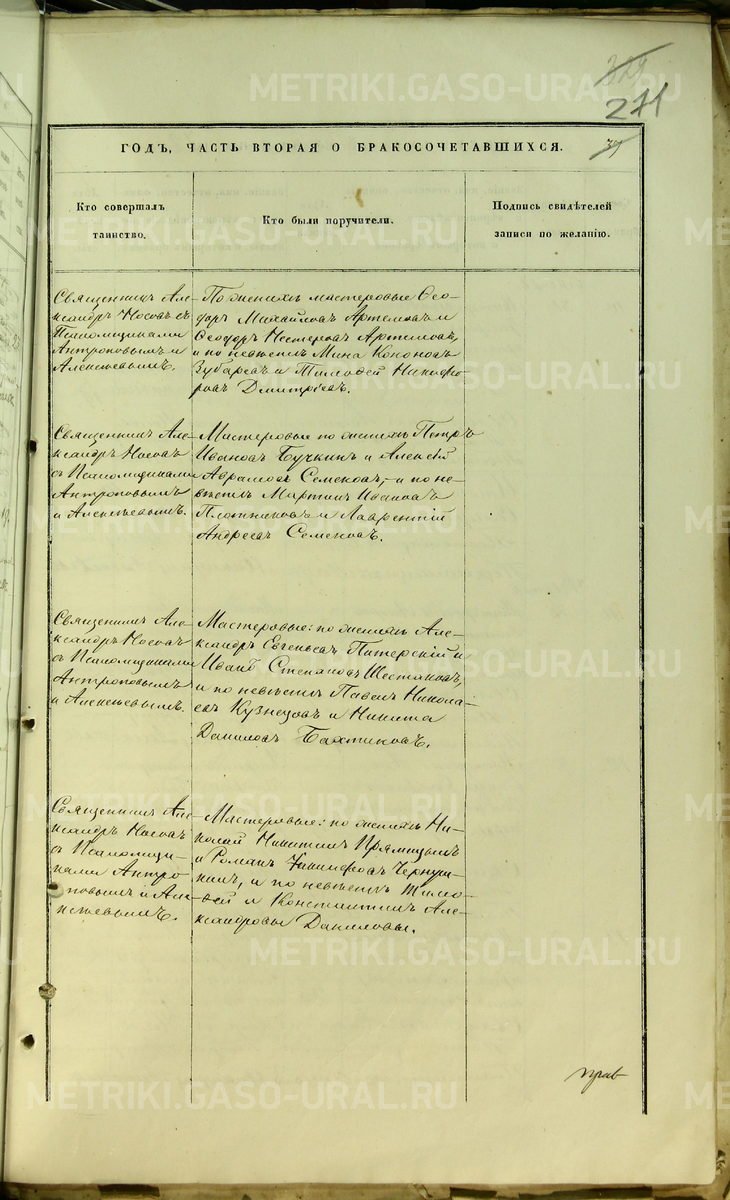 379
271
ГОДЪ, ЧАСТЬ ВТОРАЯ О БРАКОСОЧЕТАВШИХСЯ.
37
Кто совершалъ
таинство.
Кто были поручители.
Подпись свидѣтелей
записи по желанію.
Священникъ Але-
ксандръ Носовъ съ
Псаломщиками
Антроповымъ и
Алексѣевымъ.
По женихѣ мастеровые Ѳео-
доръ Михайловъ Артемовъ и
Ѳеодоръ Нестеровъ Артемовъ,
и по невѣстѣ Мина Кононовъ
Зубаревъ и Тимоѳей Никифо-
ровъ Дмитріевъ.
Священникъ Але-
ксандръ Носовъ
съ Псаломщиками
Антроповымъ
и Алексѣевымъ.
Мастеровые по женихѣ Петръ
Ивановъ Бучкинъ и Алексѣй
Аврамовъ Семеновъ, и по не-
вѣстѣ Мартинъ Ивановъ
Плотниковъ и Лаврентій
Андреевъ Семеновъ.
Священникъ Але-
ксандръ Носовъ
съ Псаломщиками
Антроповымъ
и Алексѣевымъ.
Мастеровые: по женихѣ Але-
ксандръ Евгеньевъ Питерскій и
Иванъ Степановъ Шестаковъ,
и по невѣстѣ Павелъ Никола-
евъ Кузнецовъ и Никита
Даниловъ Бахтиновъ.
Священникъ Але-
ксандръ Носовъ
съ Псаломщи-
ками Антро-
повымъ и Але-
ксѣевымъ.
Мастеровые: по женихѣ Ни-
колай Никитинъ Прямицынъ
и Романъ Чернуш-
кинъ, и по невѣстѣ Тимо-
ѳей и Константинъ Але-
ксандровы Даниловы.
METRIKI.GASO-URAL.RU